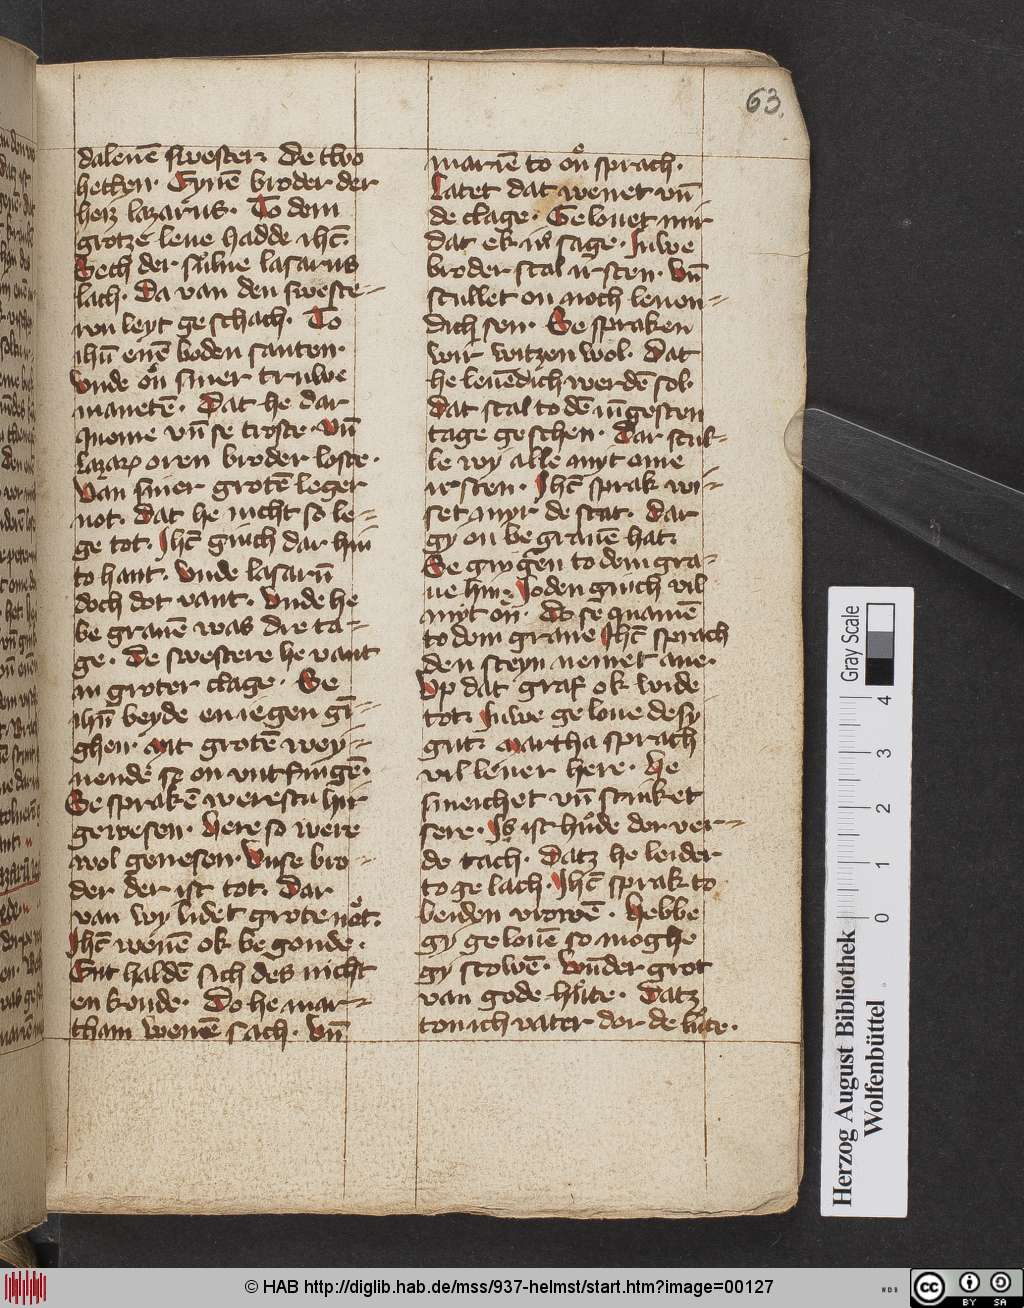 63
daleuē swester. De two
hethen. Eynē broder der
heiz lazarus. To dem
grotze leue hadde ihc̄.
Sech der sulue lasarus
lach. Da van den sweste-
ren leyt geschach. To
ihū enē boden santen.
Vnde on siner truwe
manetē. Dat he dar
queme vn̄ se troste. Vn̄
oren broder loste.
Van siner grotē leger
not. Dat he nicht so le-
ge tot. Ihc̄ ginch dar hin
to hant. Vnde lasarū
doch dot vant. Vnde he
be grauē was dre ta-
ge. De swestere he vant
in groter clage. Se
ihū beyde en iegen gī-
ghen. Mit grotē wey-
nende se on vntfingē.
Se sprakē werestu hir
gewesen. Here so were
wol genesen. Vnse bro-
der der ist tot. Dar
van wy lidet grote not.
Ihc̄ wenē ok be gonde.
Ent haldē sich des nicht
en konde. Do he mar-
tham wenē sach. Vn̄
mariē to on sprach.
Latet dat wenet vn̄
de clage. Gelouet mir
dat ek iv sage. Iuwe
broder scal irsten. Vn̄
scullet on noch leuen-
dich sen. Se spraken
wir witzen wol. Dat
he leuēdich werdē sol.
Dat scal to dē iūgesten
tage geschen. Dar scul-
le wy alle myt ome
irsten. Ihc̄ sprak wi-
set myr de stat. Dar
gy on be grauē hat.
Se gingen to dem gra-
ue hin. Ioden ginch vil
myt on. Do se quamē
to dem graue Ihc̄ sprach
den steyn nemet aue.
Vp dat graf ok wide
tot. Iuwe geloue de sy
gut. Martha sprach
vil leuer here. He
smeichet vn̄ stinket
sere. Is ist hude der ver-
de tach. Datz he leider
to ge lach. Ihc̄ sprak to
beiden vrowē. Hebbe
gy gelouē so moghe
gy scowē. Wunder grot
van gode hute. Datz
ton ich vater dor de lute.
Herzog August Bibliothek
Wolfenbüttel
Gray Scale
0 1 2 3 4
© HAB http://diglib.hab.de/mss/937-helmst/start.htm?image=00127
WDB
cc BY SA